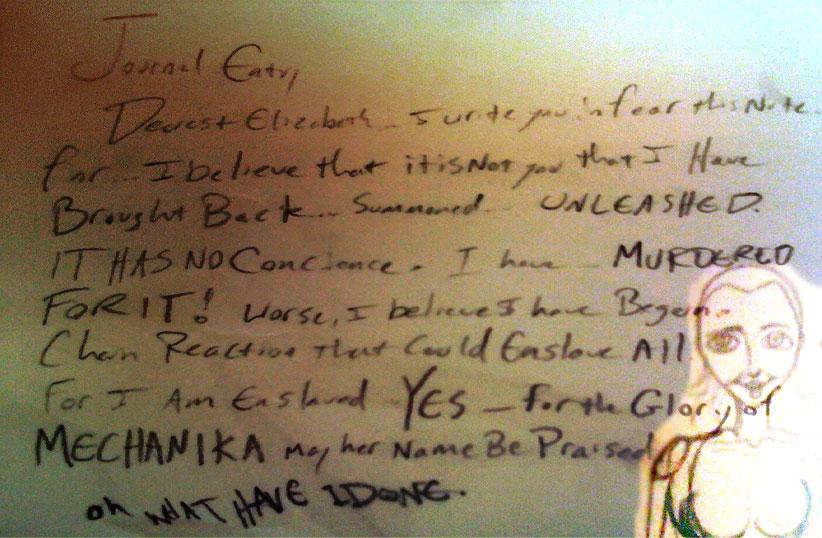 Journal Entry
Dearest Elizabeth... I write you in fear this Note..
for... I believe that it is Not you that I Have
Brought Back... Summoned... UNLEASHED.
IT HAS NO Concience. I have... MURDERED
FOR IT! Worse, I believe I have Began..
Chain Reaction That Could Enslave All
For I Am Enslaved YES – For the Glory of
MECHANIKA May her Name Be Praised
oh WHAT HAVE I DONE.